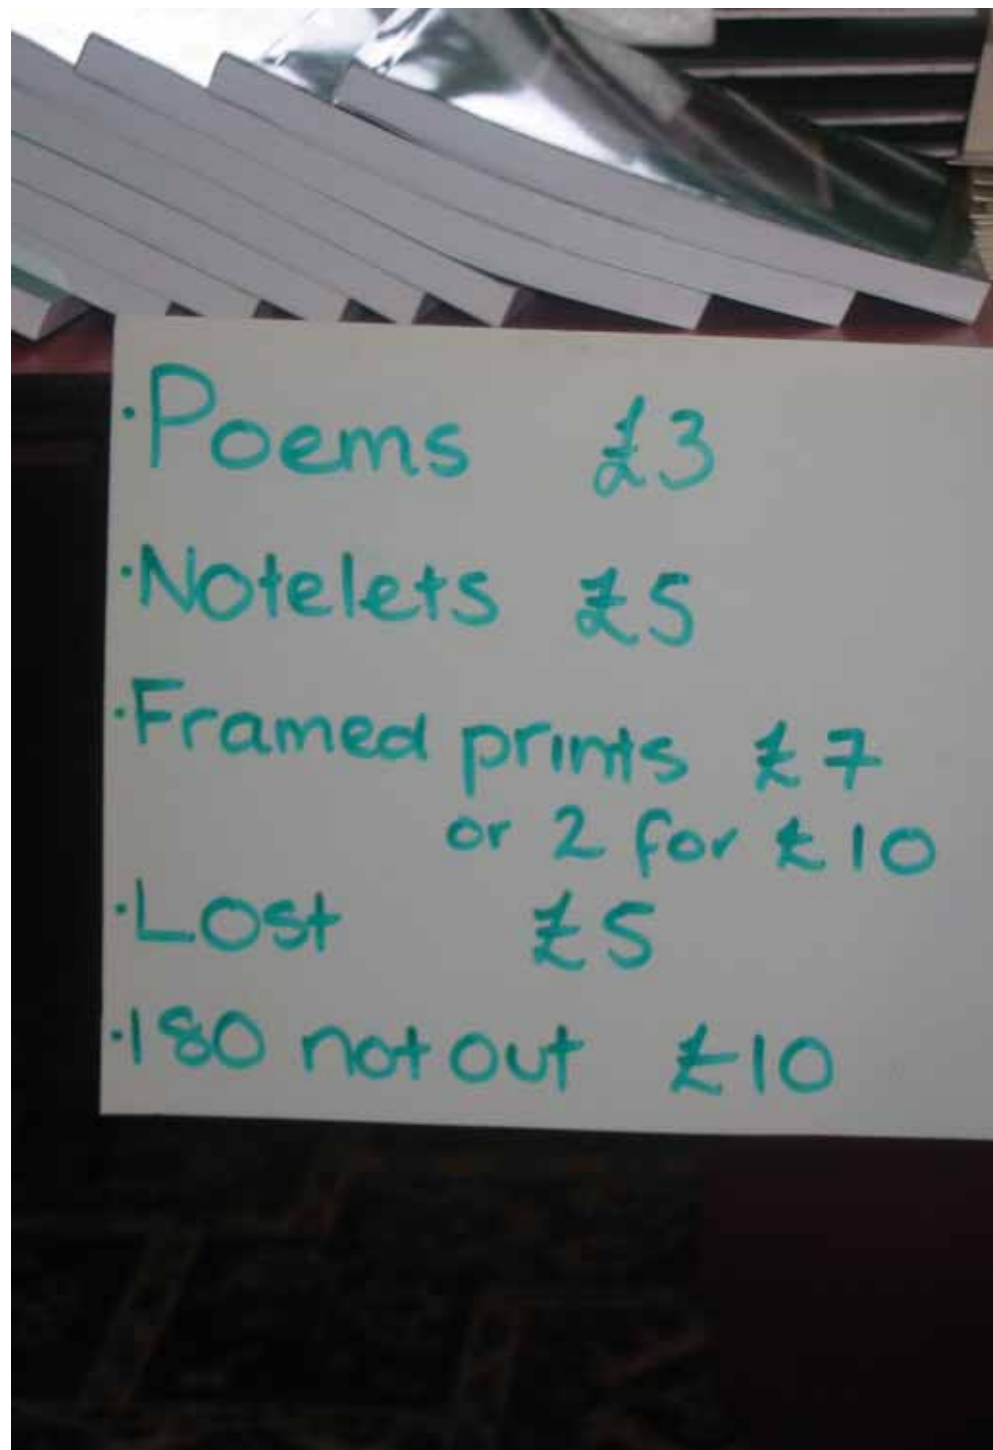 ·Poems £3
·Notelets £5
·Framed prints £7
or 2 for £10
·Lost £5
·180 not out £10